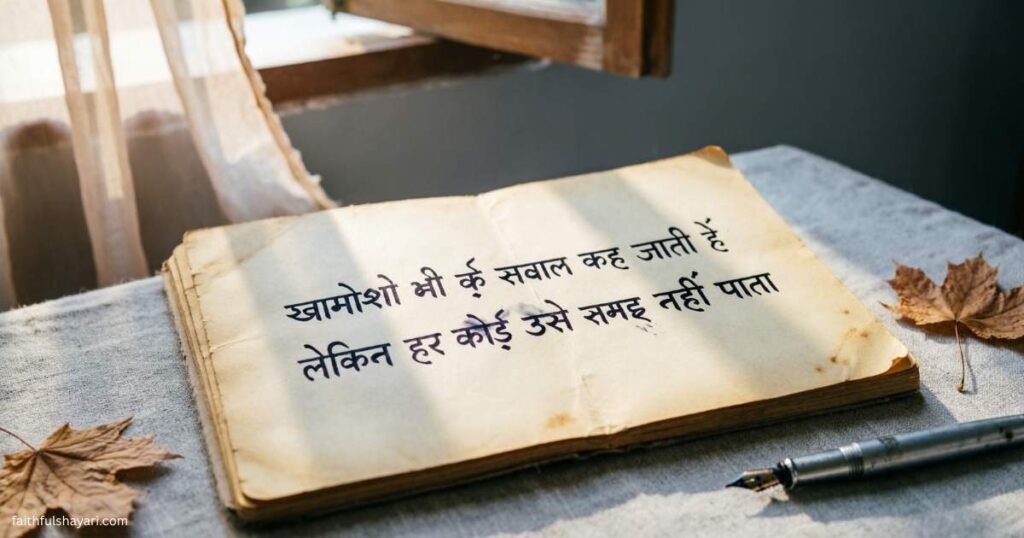 खामोशो भी र्क़ सवाल कह जाती हें
लेकिन हर कौर्ड़ उसे समइ नहीं पाता
faithfulshayari.com